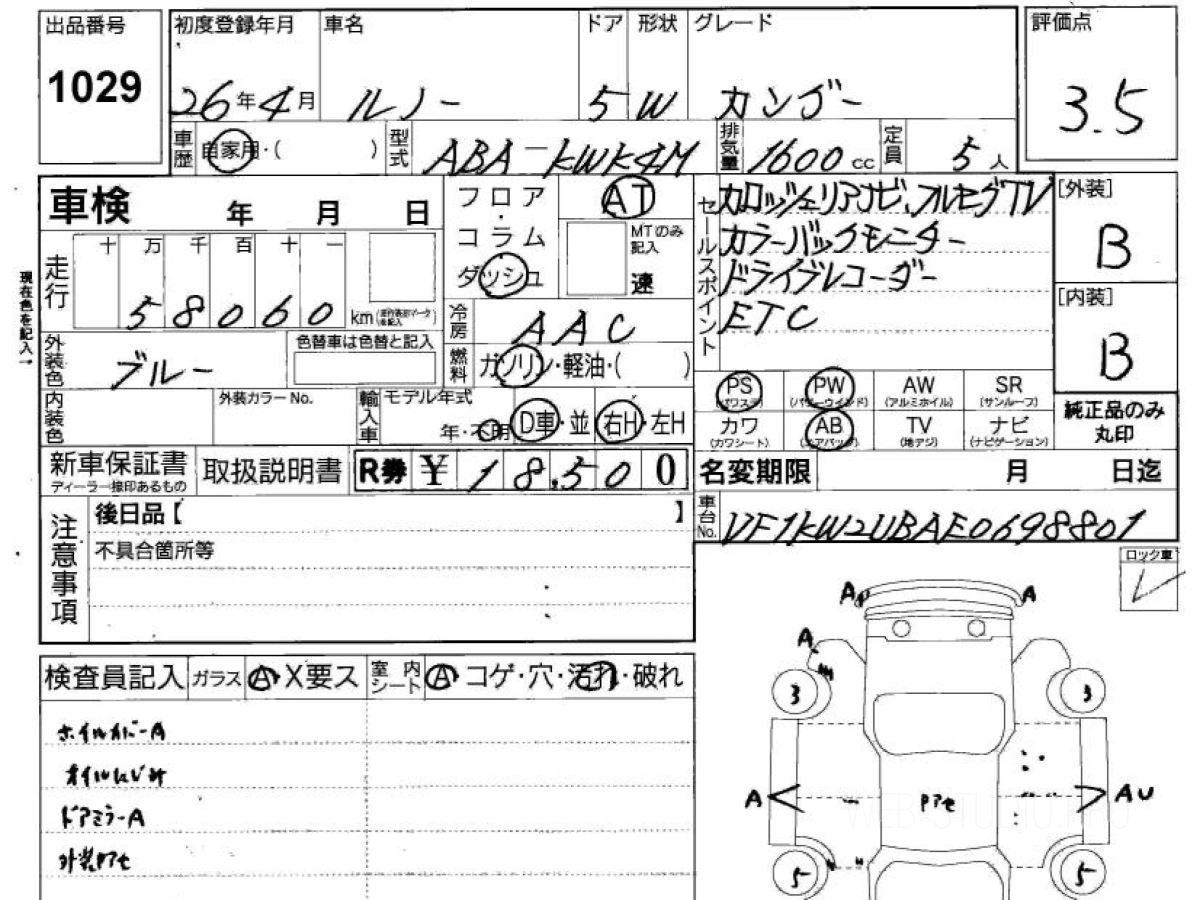 出品番号
1029
初度登録年月
26年4月
車名
ルノー
ドア
5
形状
W
グレード
カングー
評価点
3.5
車歴 自家用・( )
型式 ABA-KWK4M
排気量 1600 cc
定員 5人
車検 年 月 日
フロア・コラム ダッシュ
AT
MTのみ記入
速
セールスポイント
カロッツェリアナビ、フルセグTV
カラーバックモニター
ドライブレコーダー
ETC
[外装]
B
[内装]
B
現在色を記入→
走行
十万千百十一
58060 km
冷房 AAC
外装色 ブルー
色替車は色替と記入
燃料 ガソリン・軽油・( )
内装色
外装カラー No.
輸入車
モデル年式
年・不明
D車・並
右H・左H
PS (パワステ)
PW (パワーウインド)
AW (アルミホイル)
SR (サンルーフ)
カワ (カワシート)
AB (エアバッグ)
TV (地デジ)
ナビ (ナビゲーション)
純正品のみ
丸印
新車保証書
ディーラー捺印あるもの
取扱説明書
R券 ¥ 18,500
名変期限 月 日迄
注意事項
後日品【 】
不具合箇所等
車台No. VF1KW2UBAE0698801
ロック車
検査員記入
ガラス A・X要ス
室内シート A・コゲ・穴・汚れ・破れ
ホイルカバーA
オイルにじみ
ドアミラーA
外装アセ
A A
A
3 3
A アセ AU
5 5